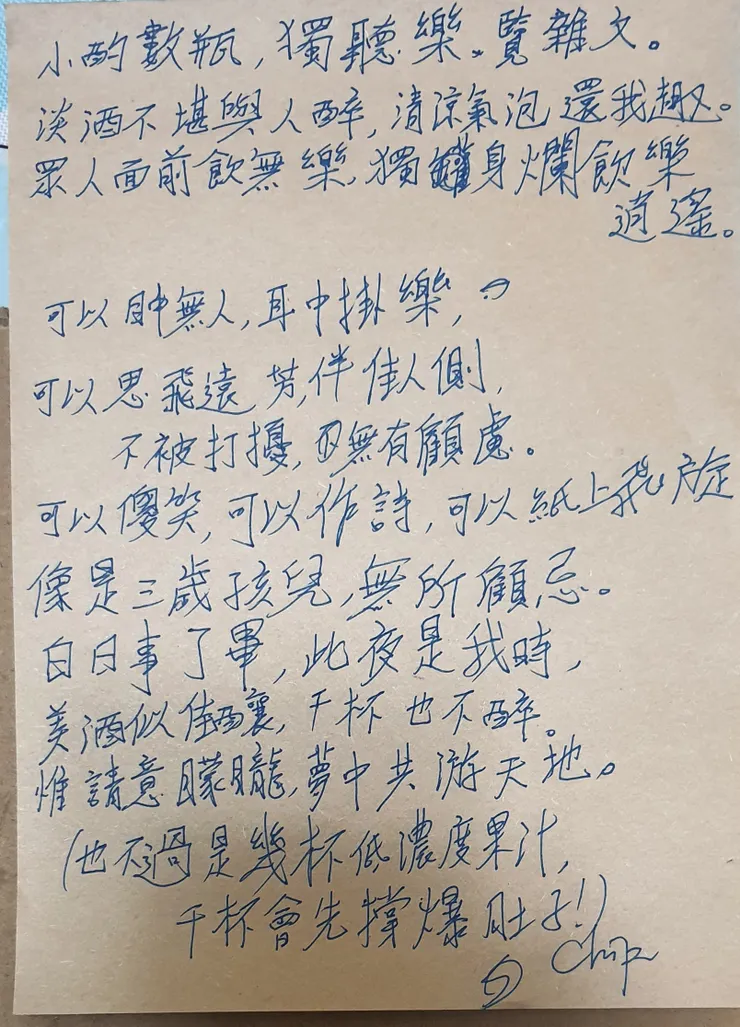 小酌數瓶，獨聽樂、覽雜文。
淡酒不堪與人醉，清涼氣泡還我趣。
眾人面前飲無樂，獨身爛飲樂
逍遙。
可以目中無人，耳中掛樂，
可以思飛遠方，伴佳人側，
不被打擾，亦無有顧慮。
可以傻笑，可以作詩，可以紙上飛旋
像是三歲孩兒，無所顧忌。
白日事了畢，此夜是我時，
美酒似佳釀，千杯也不醉。
惟請意朦朧，夢中共游天地。
(也不過是幾杯低濃度果汁，
千杯會先撐爆肚子!)
Chip